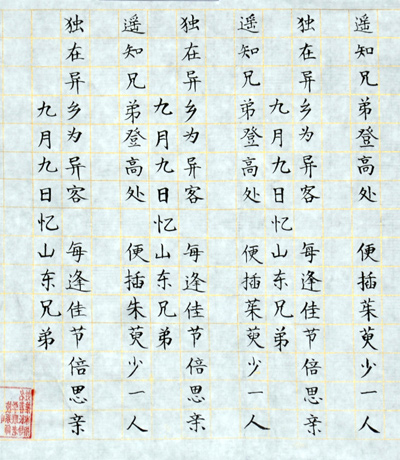 遥知兄弟登高处 便插茱萸少一人
独在异乡为异客 每逢佳节倍思亲
九月九日忆山东兄弟
遥知兄弟登高处 便插茱萸少一人
独在异乡为异客 每逢佳节倍思亲
九月九日忆山东兄弟
遥知兄弟登高处 便插朱萸少一人
独在异乡为异客 每逢佳节倍思亲
九月九日忆山东兄弟